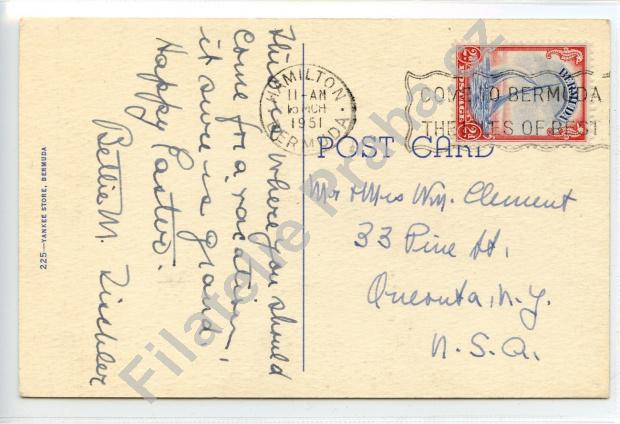 This is where you should
come for a vacation,
it sure is grand.
Happy Easter.
Bettie M.
225—YANKEE STORE, BERMUDA
HAMILTON
11-AM
MCH
1951
BERMUDA
COME TO BERMUDA
THE ISLES OF REST
BERMUDA
POST CARD
Mr & Mrs Wm. Clement
33 Pine St,
Oneonta, N.Y.
U.S.A.
Filatelie Praha.cz